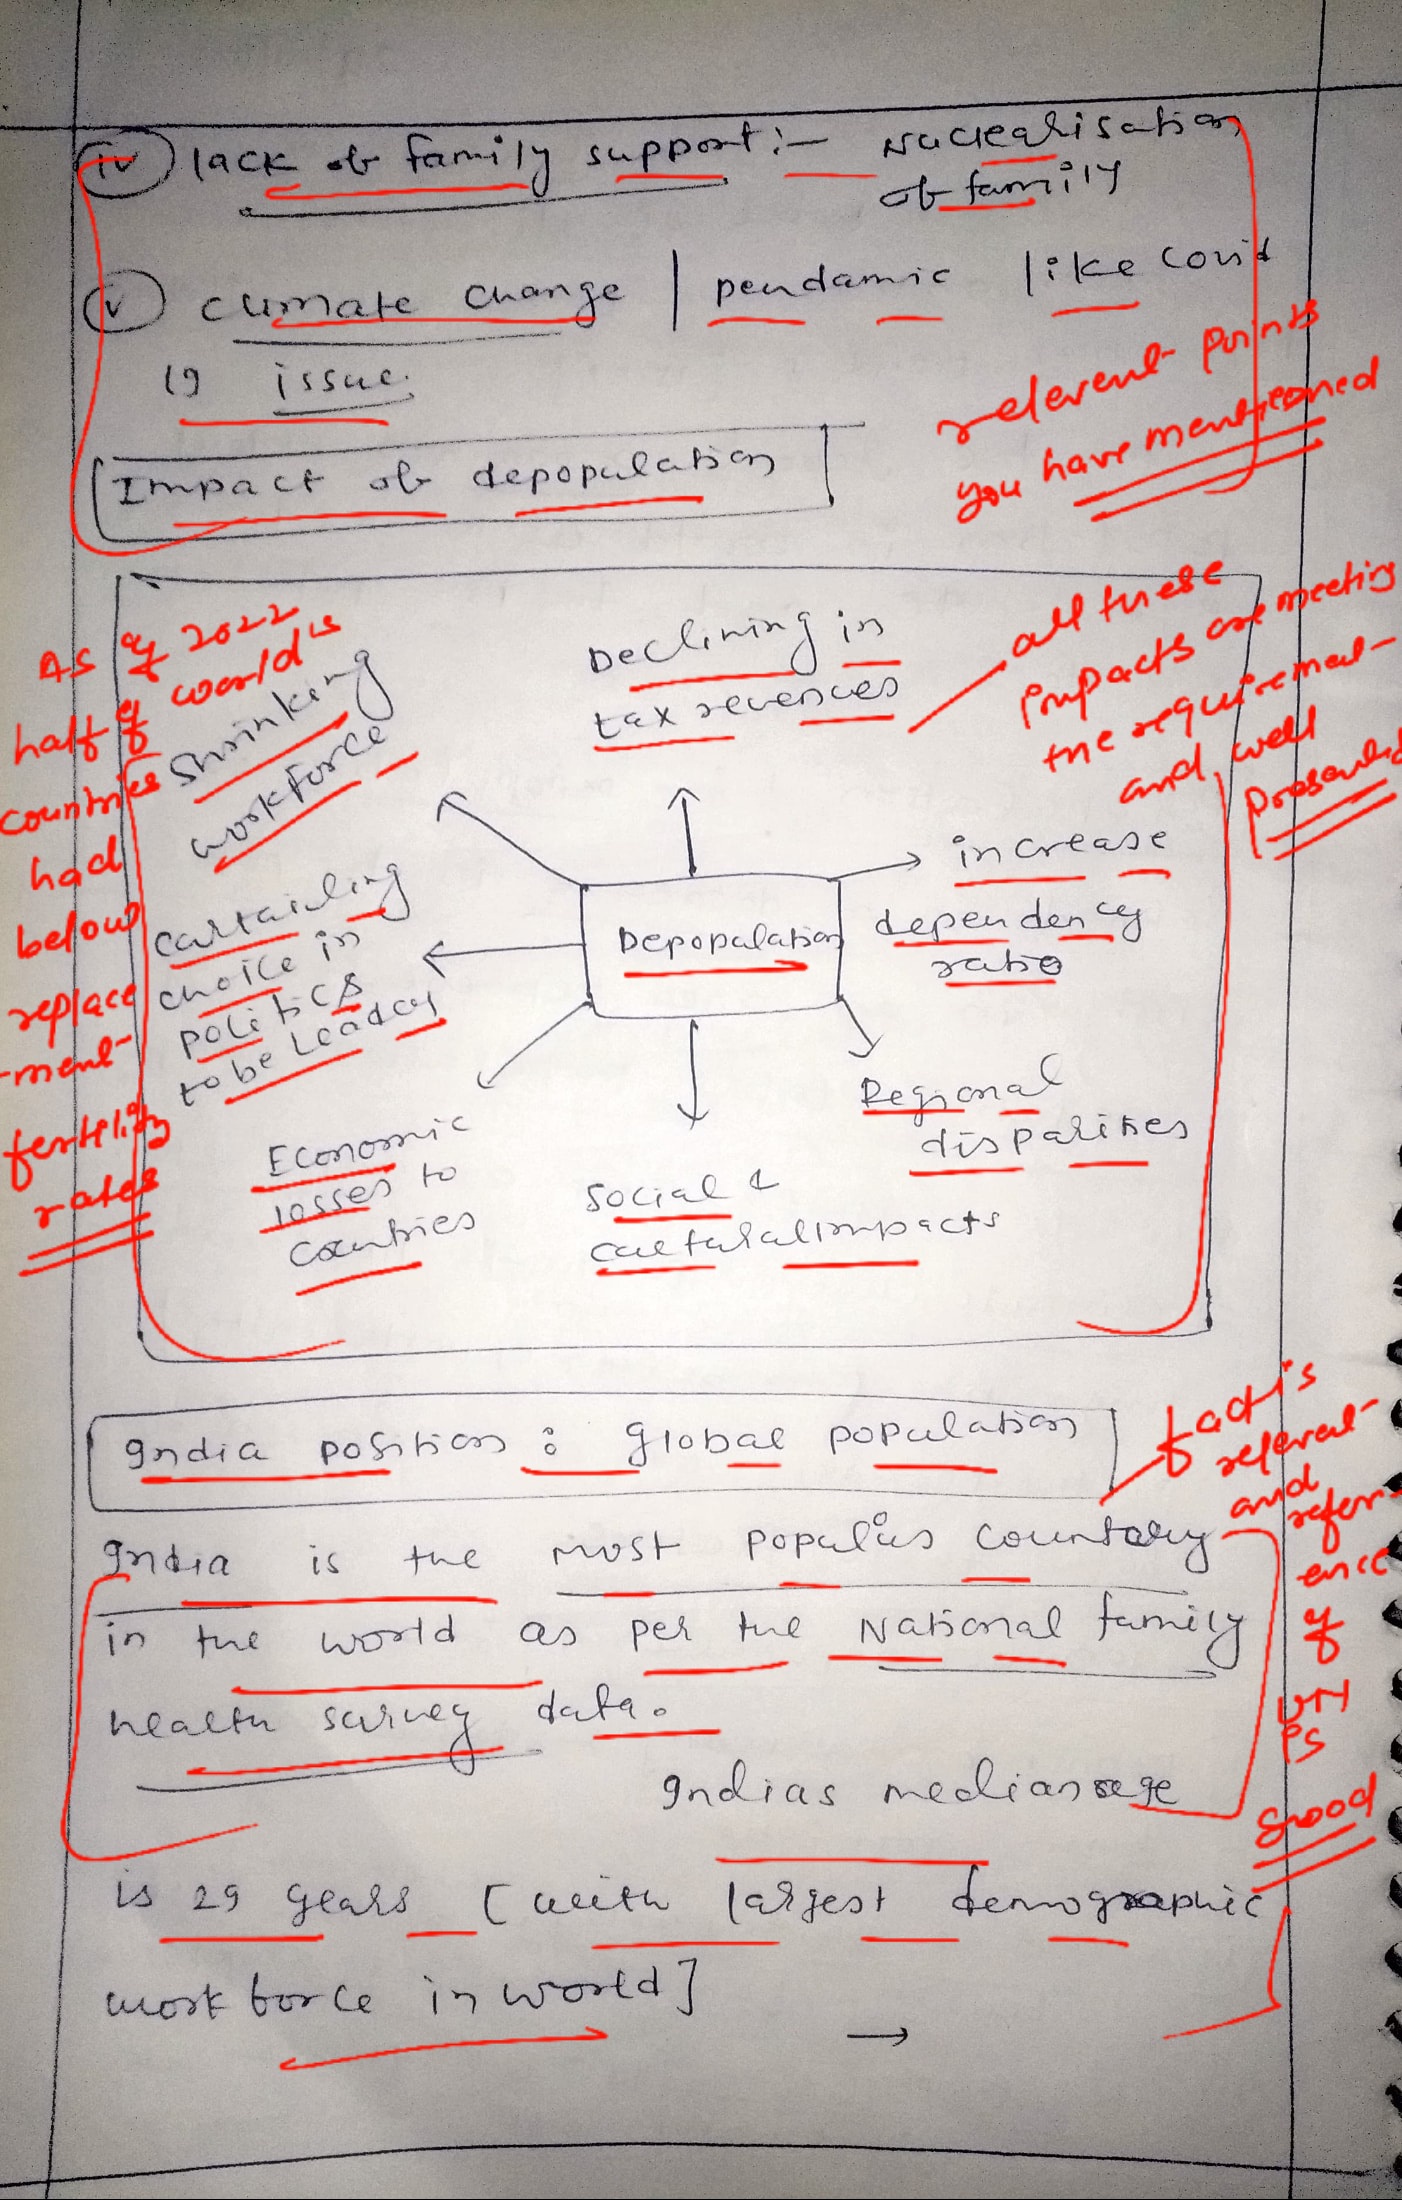 (iv) lack of family support :- Nuclearisation
of family
(v) climate change / pendamic like covid
is issue.
relevent points
you have mentioned
Impact of depopulation
As of 2022
half of world's
countries
had
below
replace
-ment
fertility
rates
Shrinking
workforce
Declining in
tax revenues
all these
impacts are meeting
the requirement
and well
presented
increase
dependency
ratio
Depopulation
curtailing
choice in
politics
to be Leader
Regional
disparities
Economic
losses to
Countries
Social &
culturalimpacts
India position : global population
fact is
relevant
and
refer-
ence
of
Good
India is the most populus country
in the world as per the National family
health survey data.
Indias median age
is 29 years [with largest demographic
work force in world]
→